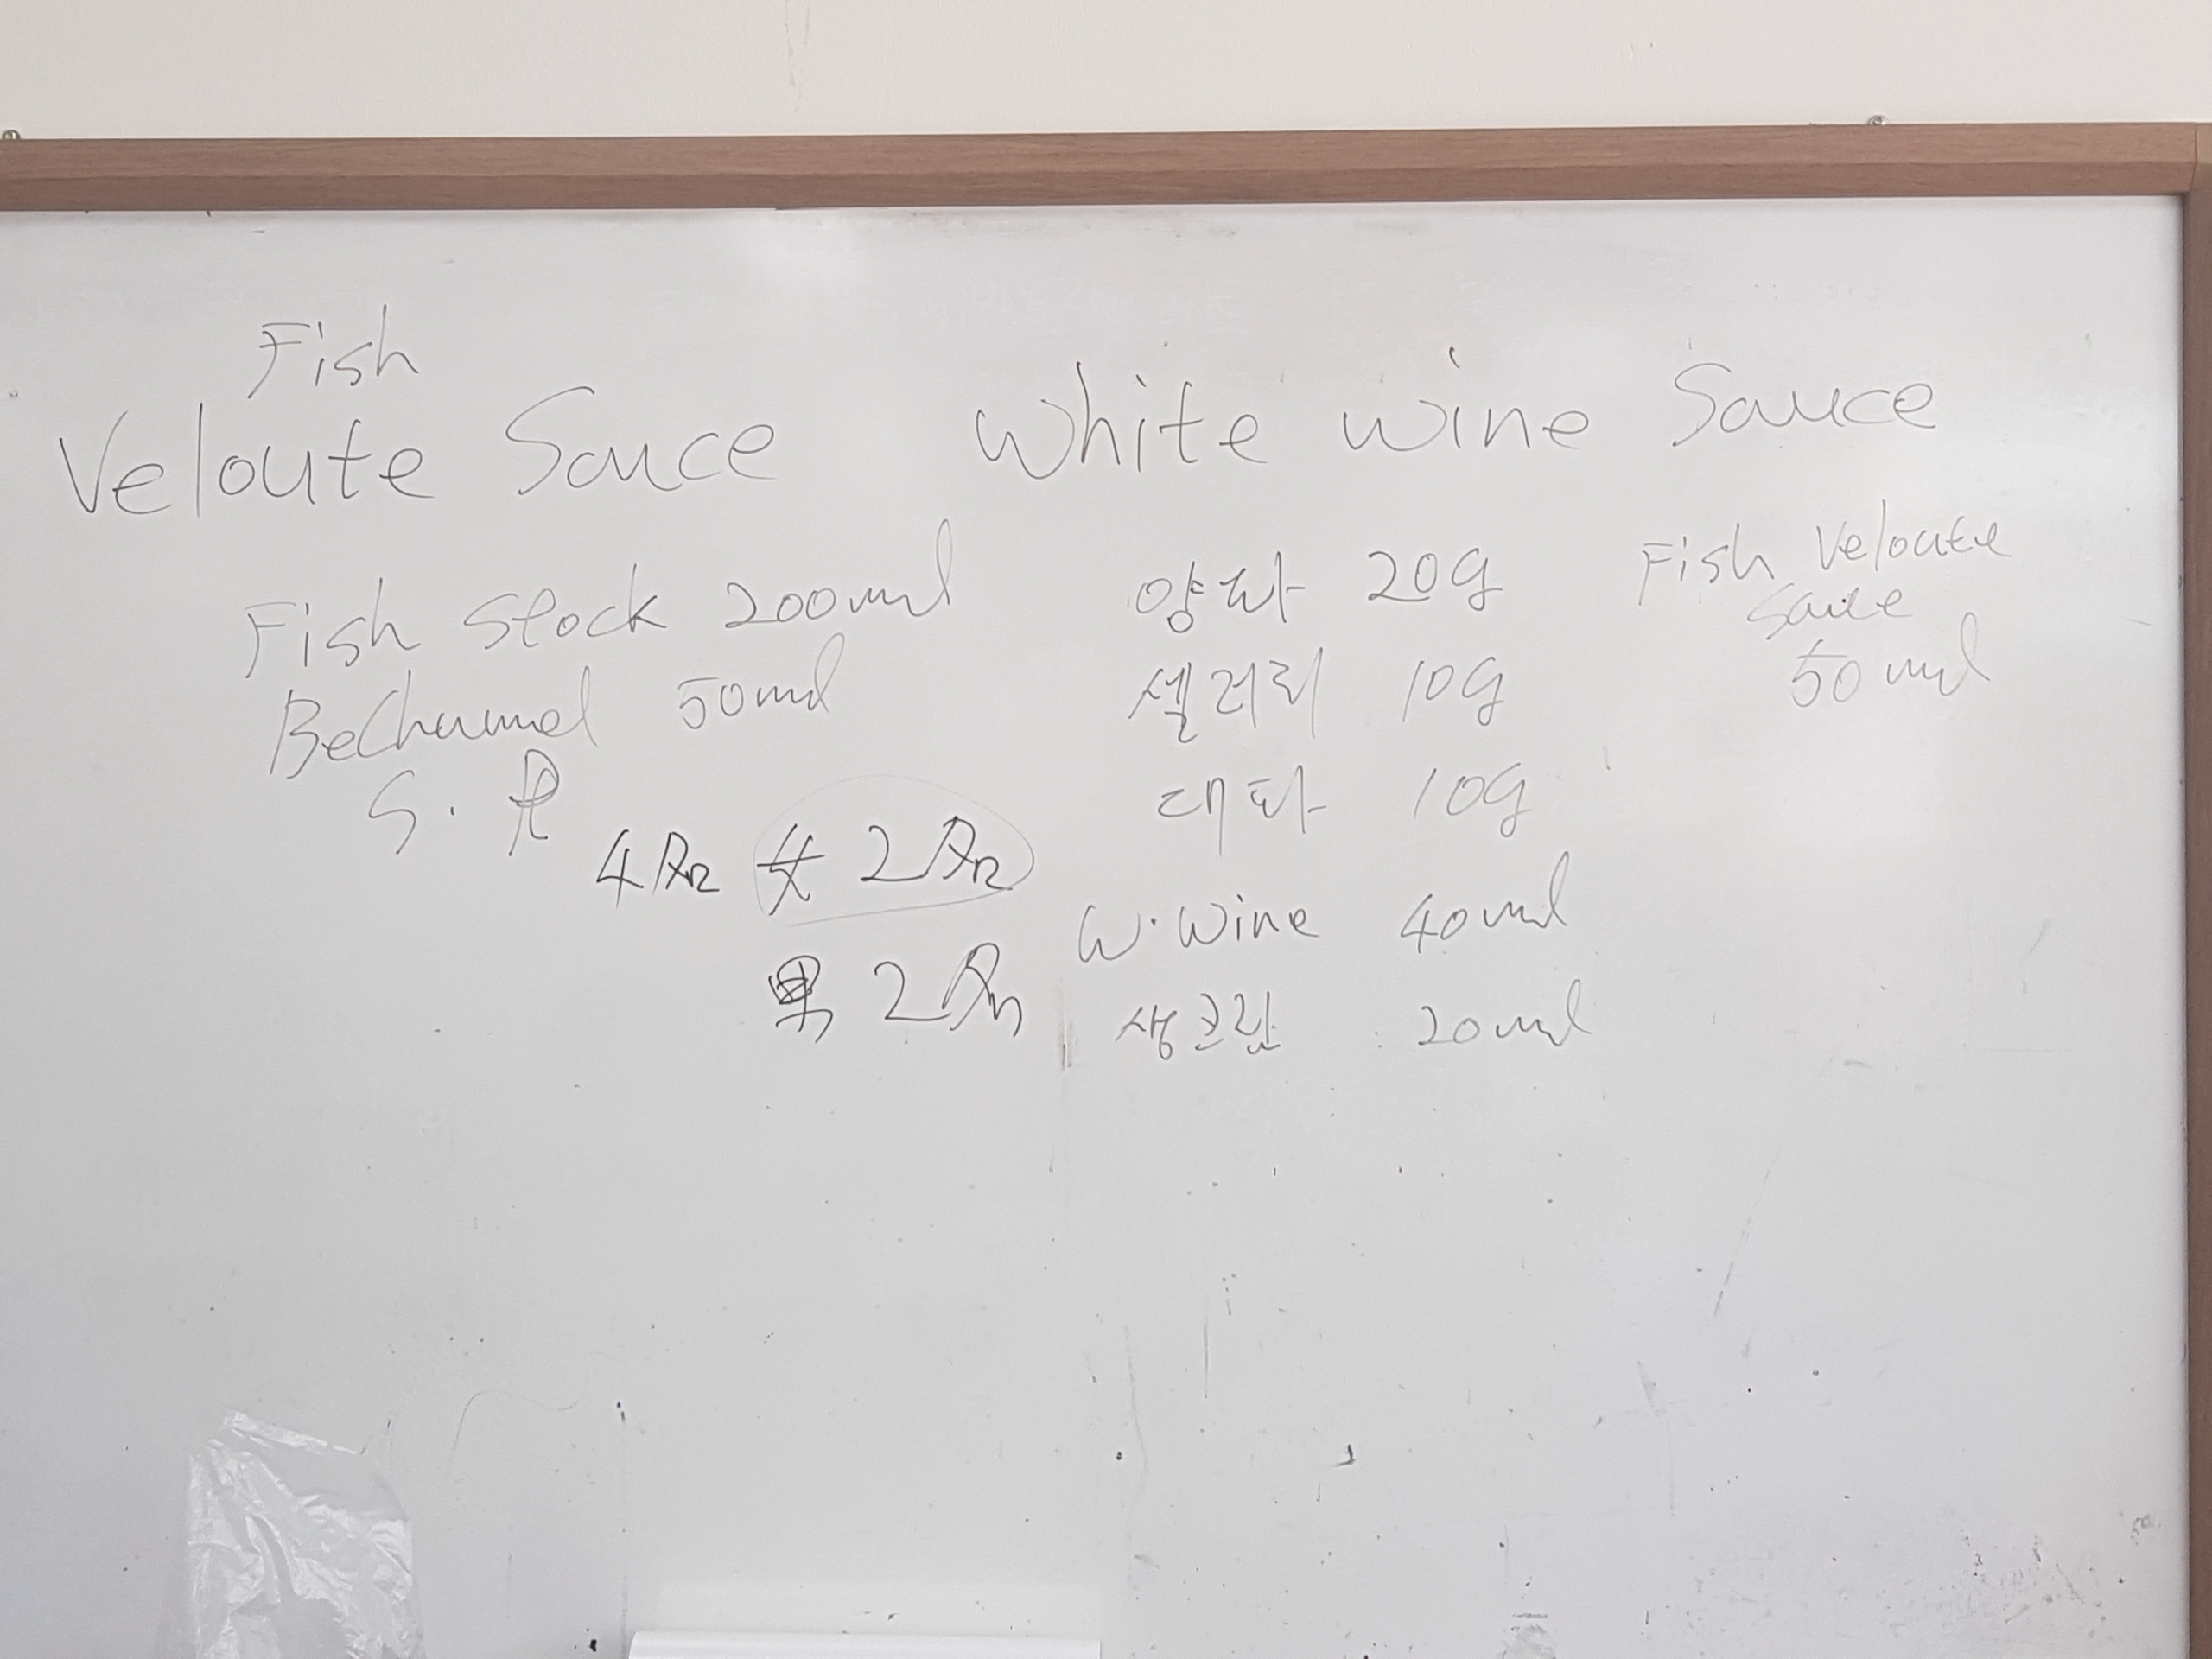 Fish
Veloute Sauce
Fish Stock 200ml
Bechamel 50ml
S. P
女 2
男 2
White wine Sauce
양파 20g
셀러리 10g
대파 10g
W.Wine 40ml
생크림 20ml
Fish Veloute
Sauce
50ml